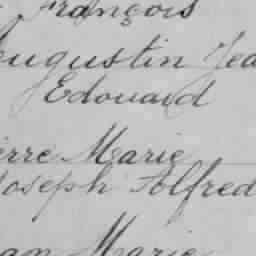 François
ugustin Jea
Edouard
erre Marie
Joseph Alfred
an Marie